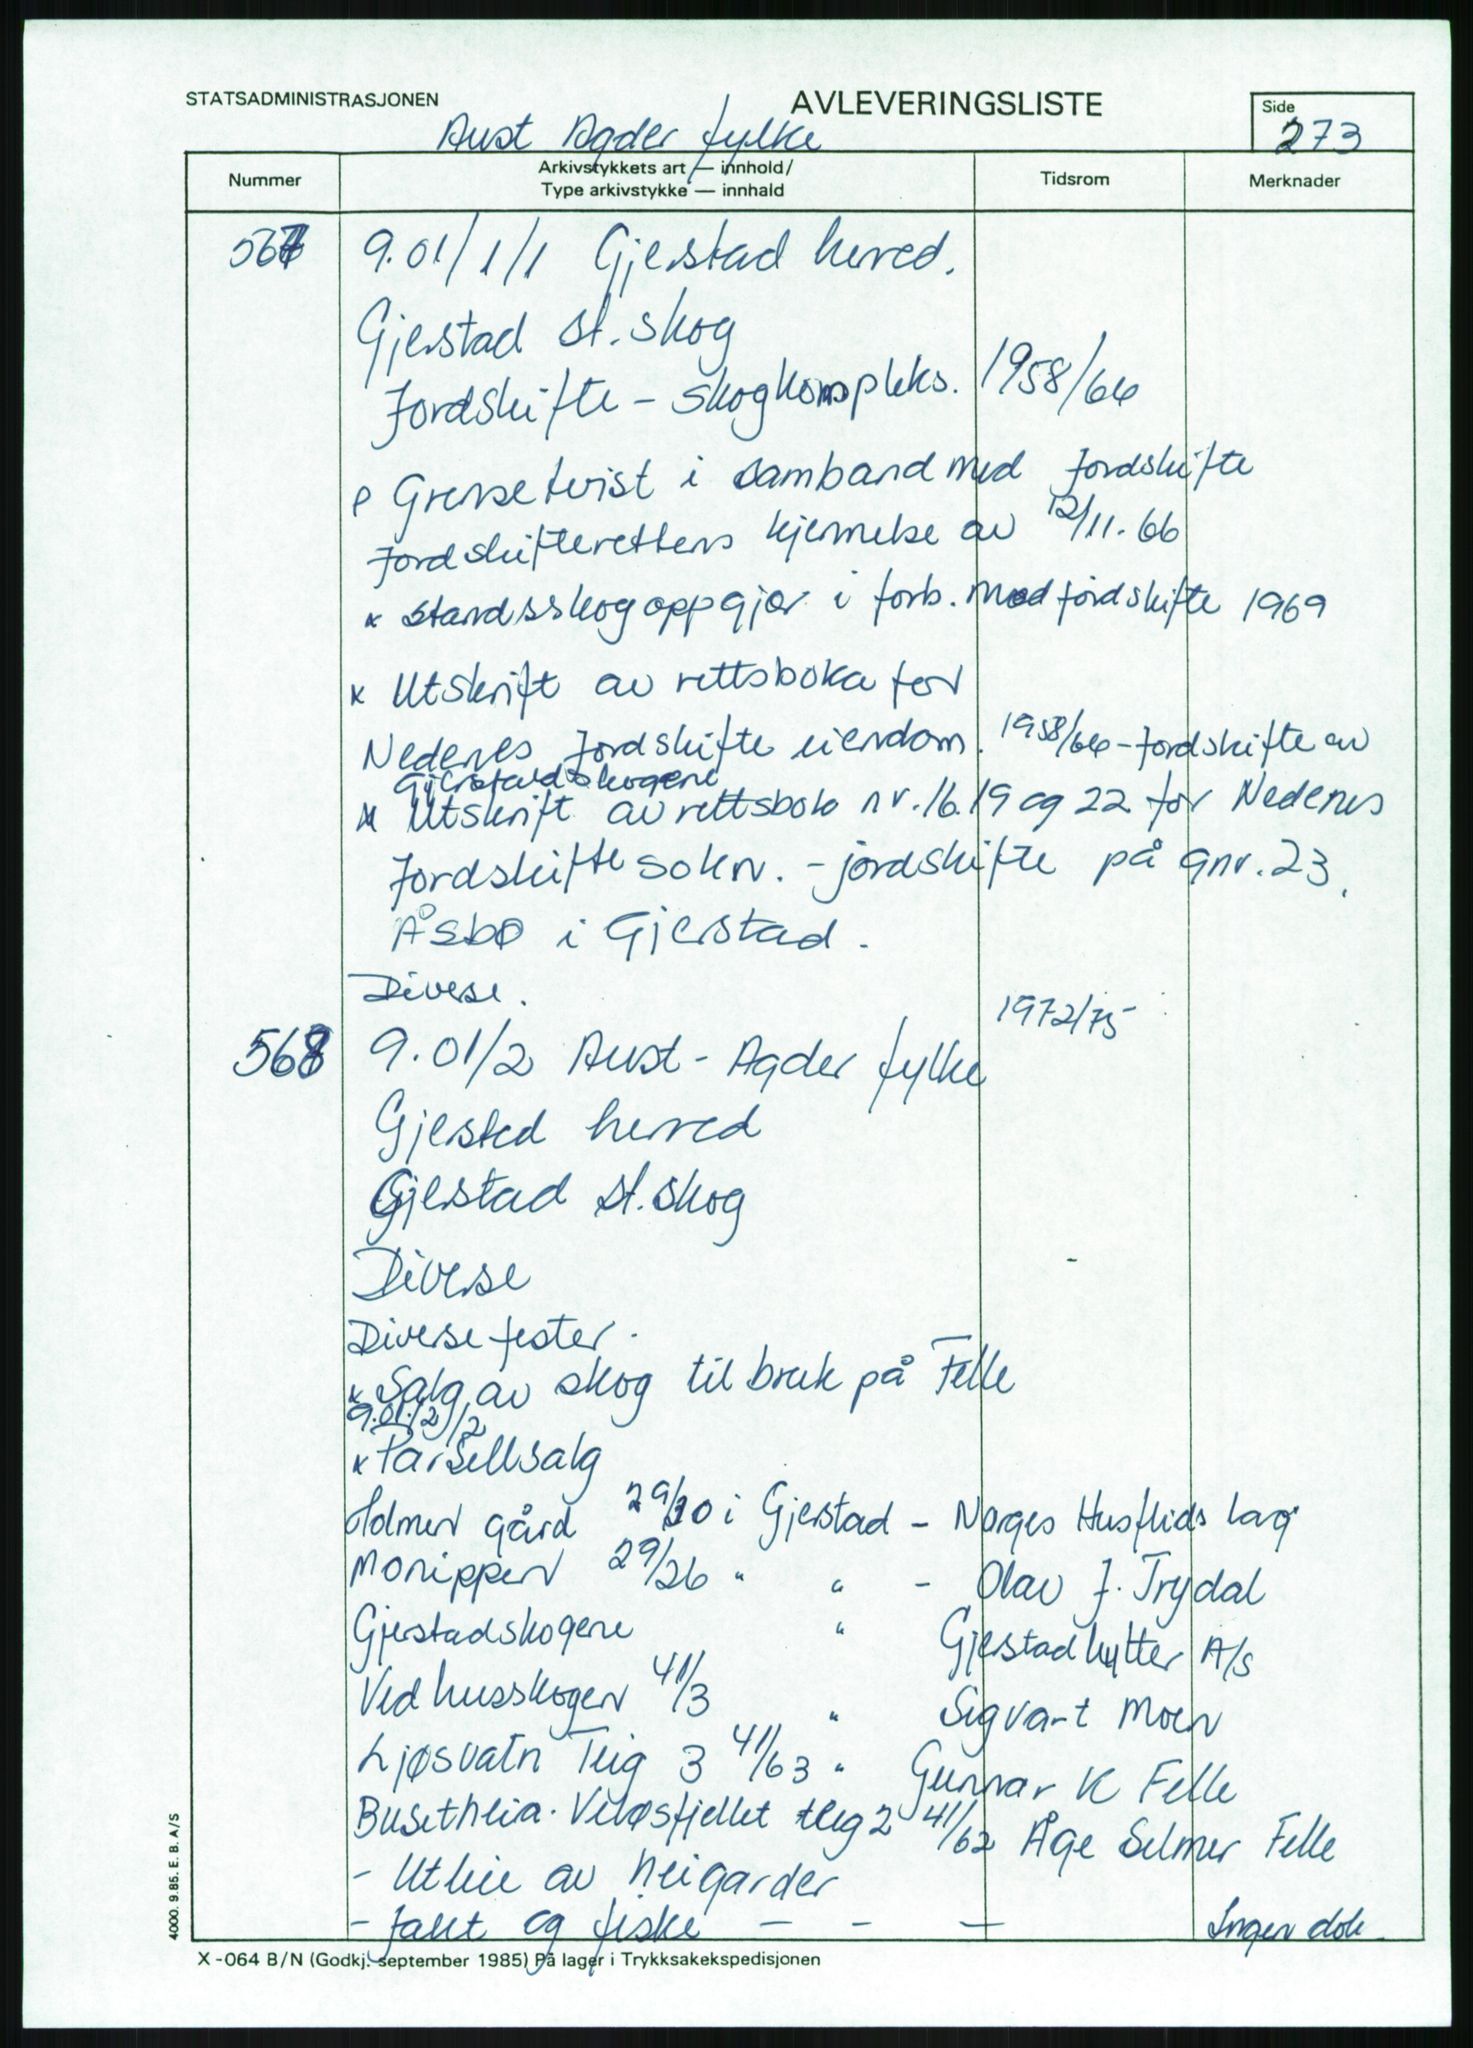 STATSADMINISTRASJONEN
AVLEVERINGSLISTE
Side
273
Aust Agder fylke
Nummer
Arkivstykkets art — innhold/
Type arkivstykke — innhald
Tidsrom
Merknader
567 9.01/1/1 Gjerstad herred.
Gjerstad st. skog
Jordskifte - skogkompleks. 1958/66
Grensetvist i samband med Jordskifte
Jordskifterettens kjennelse av 12/11.66
x Standsskogoppgjør i forb. med jordskifte 1969
x Utskrift av rettsboka for
Nedenes Jordskifte eiendom. 1958/66 - Jordskifte av
Gjerstadskogene
x Utskrift av rettsbok nr. 16.19 og 22 for Nedenes
Jordskiftesokn. - jordskifte på gnr. 23.
Åsbø i Gjerstad.
Diverse. 1972/75
568 9.01/2 Aust-Agder fylke
Gjersted herred
Gjerstad st. skog
Diverse
Diverse fester.
x Salg av skog til bruk på Felle
9.01/2/2
x Parsellsalg
Holmen gård 29/30 i Gjerstad - Norges Husflids lag
Monippen 29/26 " " - Olav J. Trydal
Gjerstadskogene " Gjerstadhytter A/S
Vedhusskogen 41/3 " Sigvart Moen
Ljøsvatn Teig 3 41/63 " Gunnar K Felle
Busetheia. Veløsfjellet teig 2 41/62 Åge Selmer Felle
- Utleie av heigarder
- Jakt og fiske — — — Ingen dok.
4000. 9.85. E. B. A/S
X-064 B/N (Godkj. september 1985) På lager i Trykksakekspedisjonen